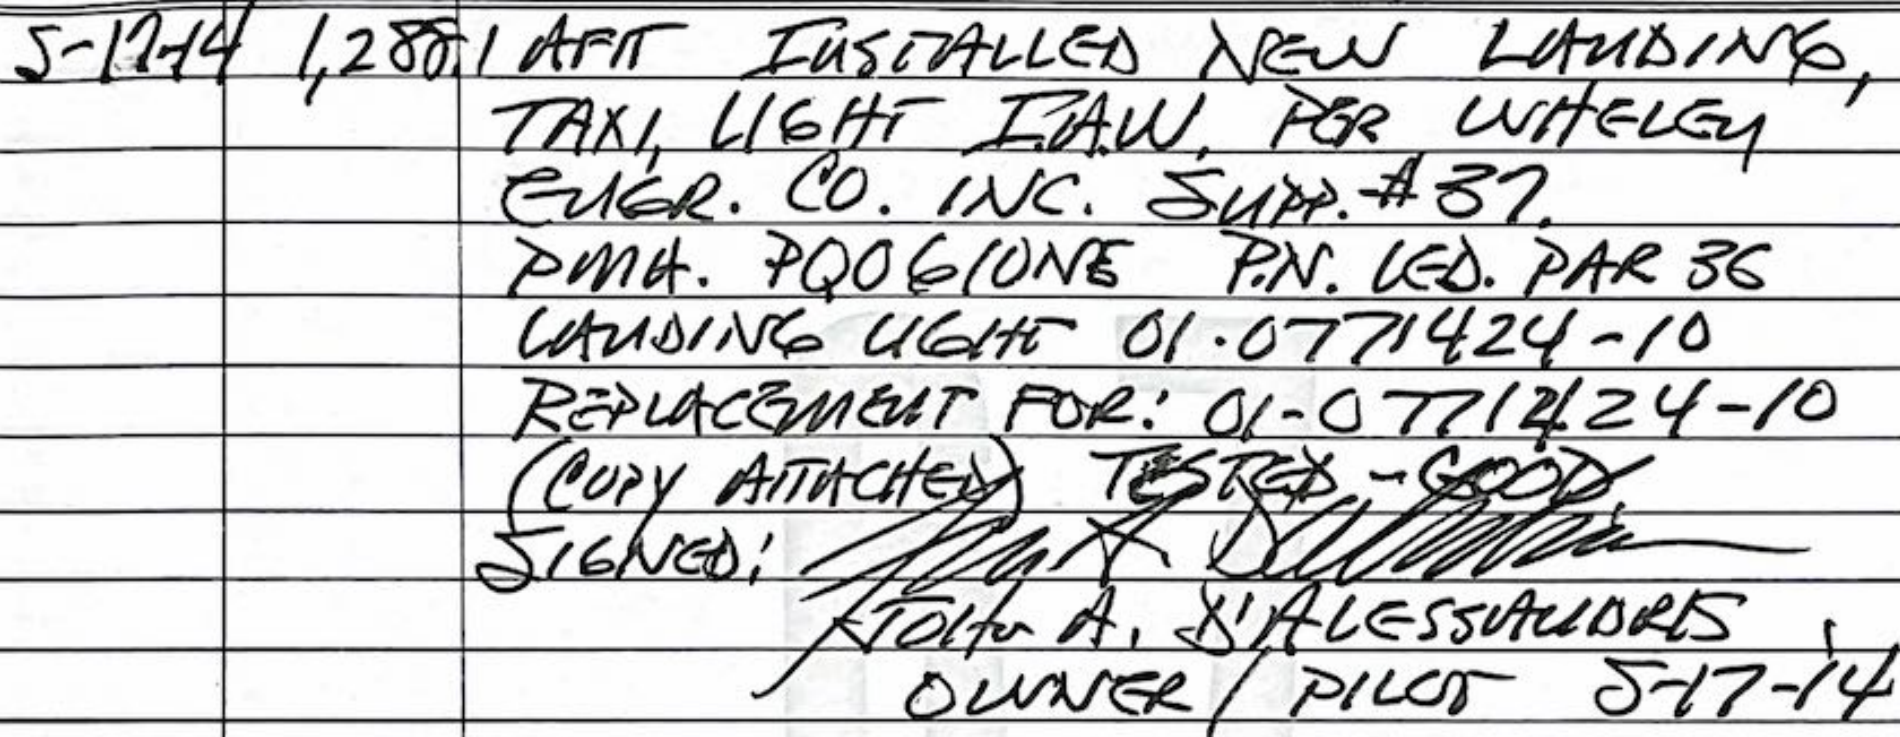 5-17-14 1,288.1 AFTT INSTALLED NEW LANDING,
TAXI, LIGHT I.A.W. PER WHELEN
ENGR. CO. INC. SUPP. #37.
PMA. PQ0610NE P.N. LED. PAR 36
LANDING LIGHT 01-0771424-10
REPLACEMENT FOR: 01-0771424-10
(COPY ATTACHED) TESTED - GOOD.
SIGNED:
JOHN A. D'ALESSANDRIS
OWNER / PILOT 5-17-14